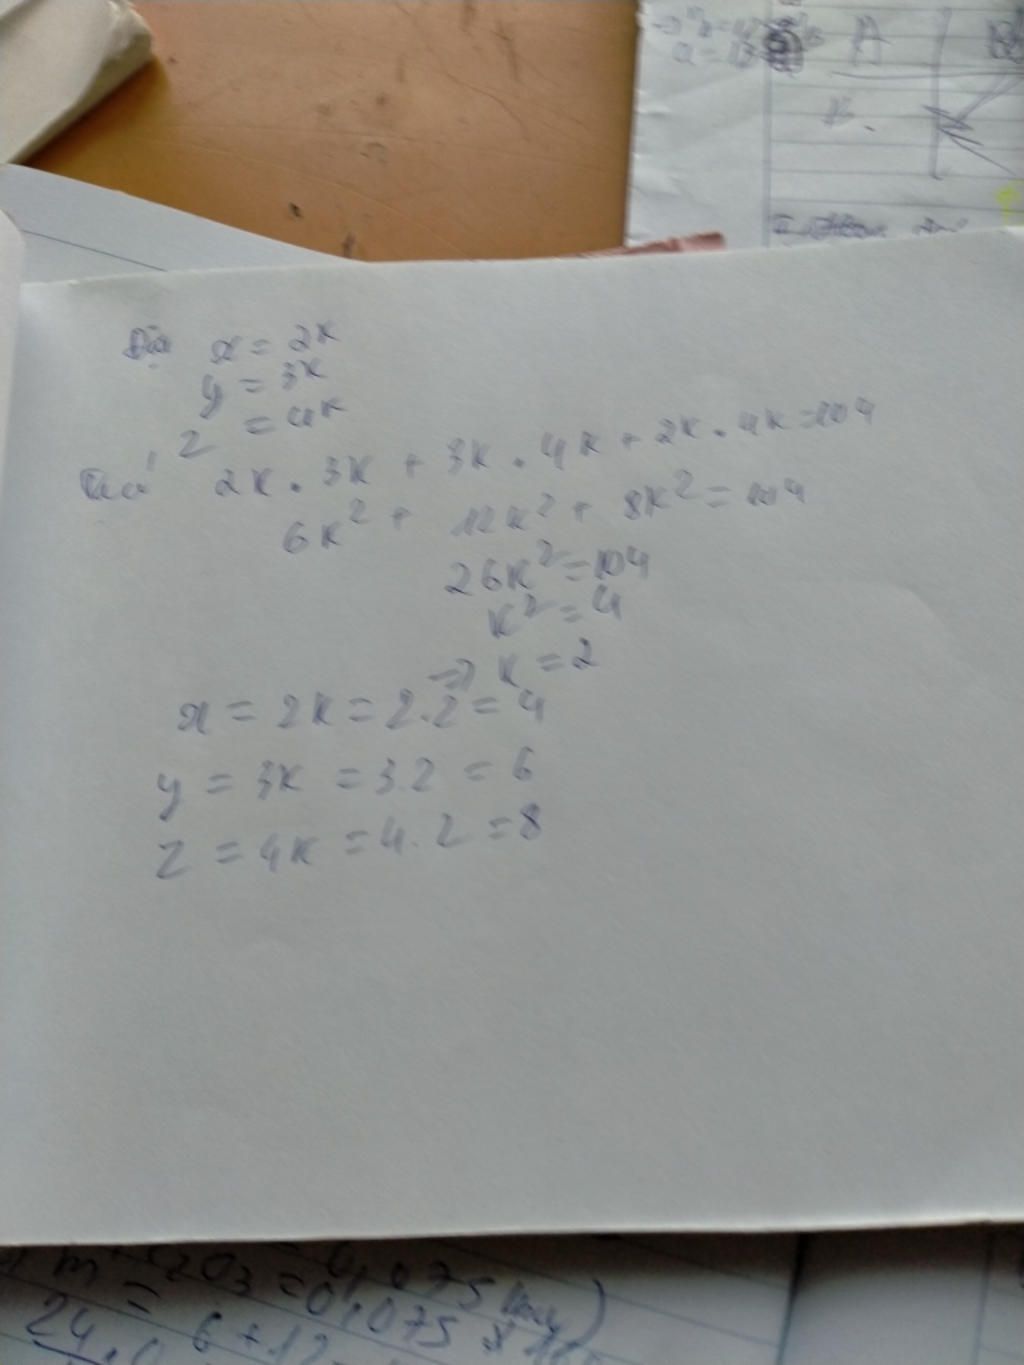 Đặt x = 2k
y = 3k
z = 4k
Ta có 2k . 3k + 3k . 4k + 2k . 4k = 104
6k² + 12k² + 8k² = 104
26k² = 104
k² = 4
=> k = 2
x = 2k = 2.2 = 4
y = 3k = 3.2 = 6
z = 4k = 4.2 = 8
A
= 0,075
24
6 + 12